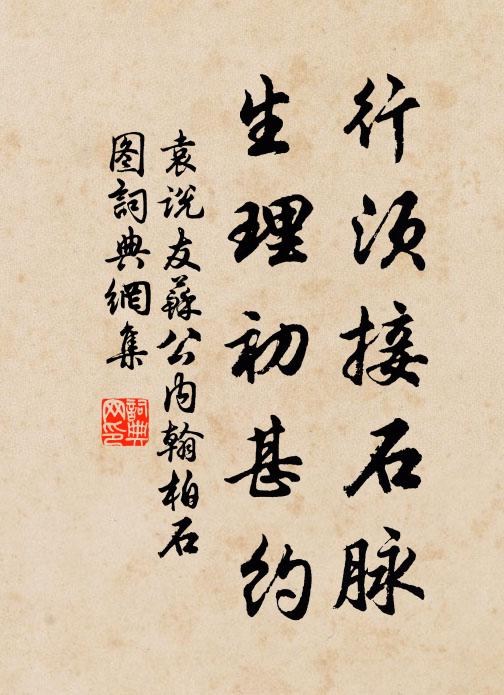 行须接石脉
生理初甚约
袁说友蘇公内翰柏石
图詞典網集
詞典网印